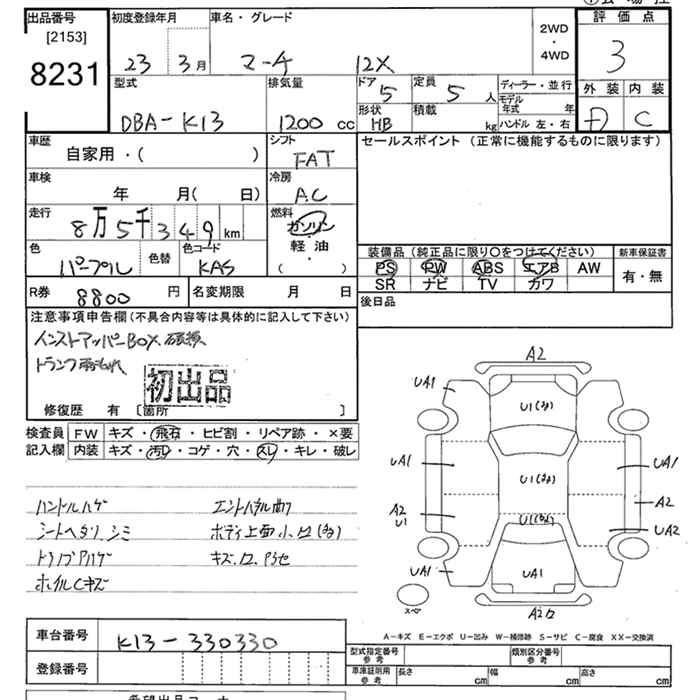 出品番号
[2153]
8231
初度登録年月
23 3月
車名・グレード
マーチ 12X
2WD
・
4WD
評価点
3
型式
DBA-K13
排気量
1200 cc
ドア
5
定員
5 人
形状
HB
積載
kg
ディーラー・並行
モデル年式 年
ハンドル 左・右
外装 内装
D C
車歴
自家用・( )
シフト
FAT
セールスポイント (正常に機能するものに限ります)
車検
年 月( 日)
冷房
AC
走行
8万5千349 km
燃料
ガソリン
軽油
( )
色
パープル
色替
色コード
KAS
装備品 (純正品に限り○をつけてください)
新車保証書
PS PW ABS エアB AW
有・無
SR ナビ TV カワ
R券 8800 円
名変期限 月 日
後日品
注意事項申告欄(不具合内容等は具体的に記入して下さい)
インストアッパーBOX破損
トランク雨もれ
初出品
修復歴 有 [箇所 ]
検査員 FW キズ・飛石・ヒビ割・リペア跡・×要
記入欄 内装 キズ・汚レ・コゲ・穴・スレ・キレ・破レ
ハンドルハゲ エンドパネル曲ク
シートヘタリ、シミ ボディ上面小凹(多)
ホイルCキズ
A2
UA1
U1(多)
UA1
U1(多)
UA1
A2
U1
A2
U1(多)
UA2
UA1
UA1
UA1
スペア
A-キズ E-エクボ U-凹み W-補修跡 S-サビ C-腐食 XX-交換済
車台番号 K13-330330
登録番号
型式指定番号
参考
類別区分番号
参考
車庫証明用
参考
長さ cm
幅 cm
高さ cm